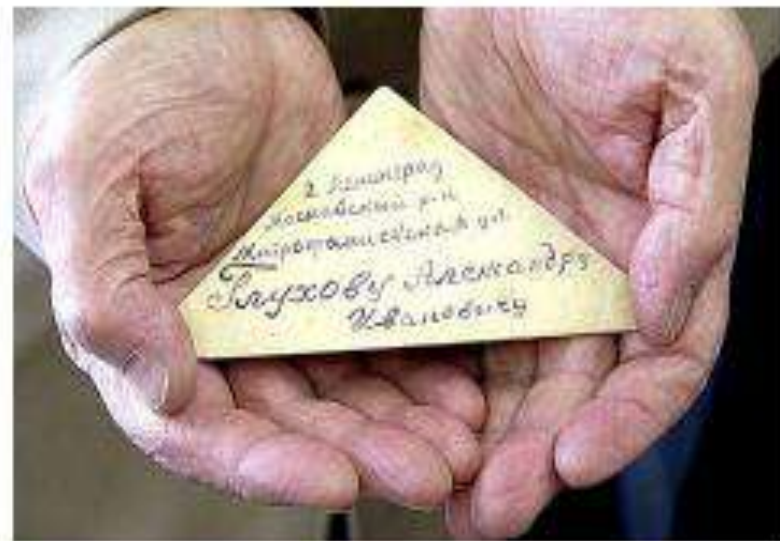 г Ленинград
Московский р-н
Митрофаньевская ул.
Глухову Александру
Ивановичу